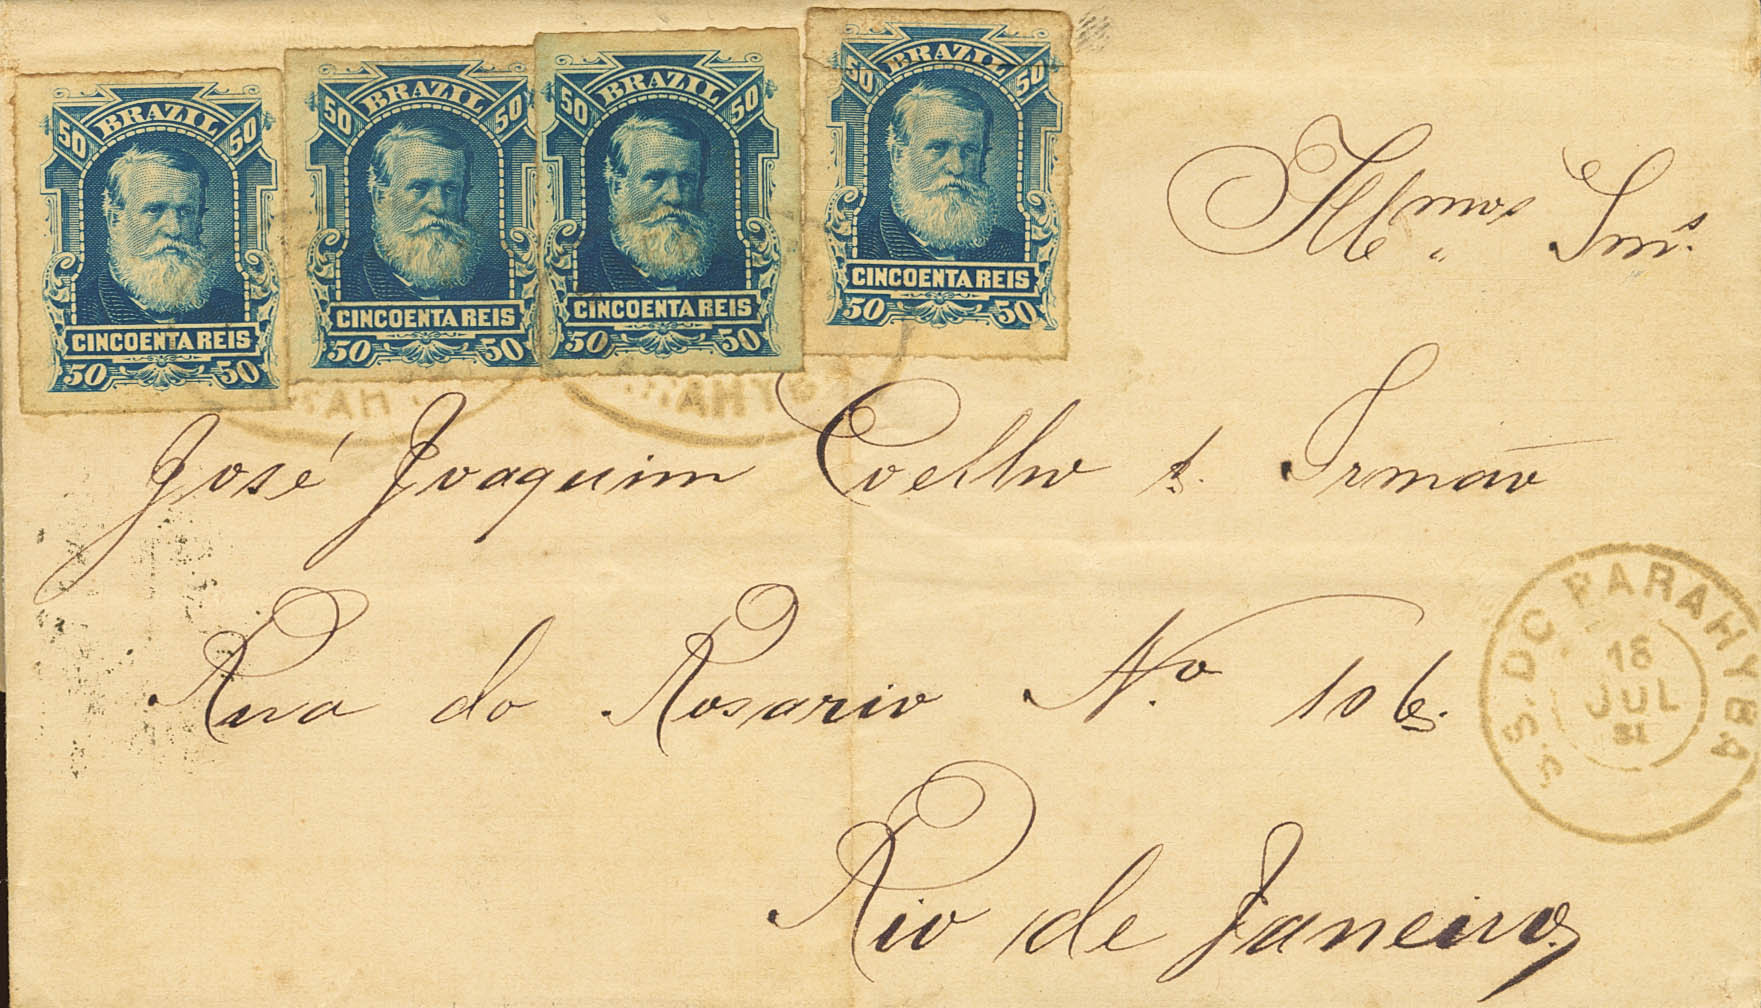 50 BRAZIL 50
CINCOENTA REIS
50 50
50 BRAZIL 50
CINCOENTA REIS
50 50
50 BRAZIL 50
CINCOENTA REIS
50 50
50 BRAZIL 50
CINCOENTA REIS
50 50
Illmos Snrs.
José Joaquim Coelho & Irmão
Rua do Rosario No. 106
Rio de Janeiro
S. DO PARAHYBA
18
JUL
81
RAHYB